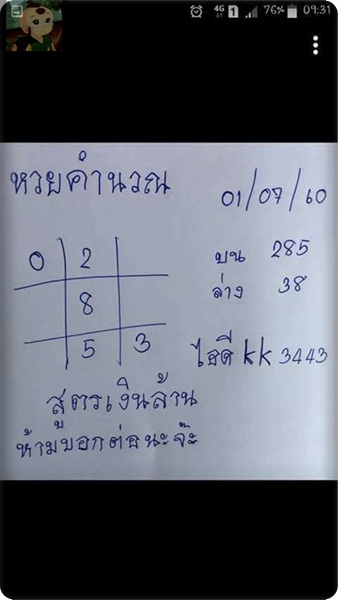 4G 1 76% 09:31
หวยคำนวณ 01/07/60
0 2
8
5 3
บน 285
ล่าง 38
ไอดี kk 3443
สูตรเงินล้าน
ห้ามบอกต่อนะจ๊ะ